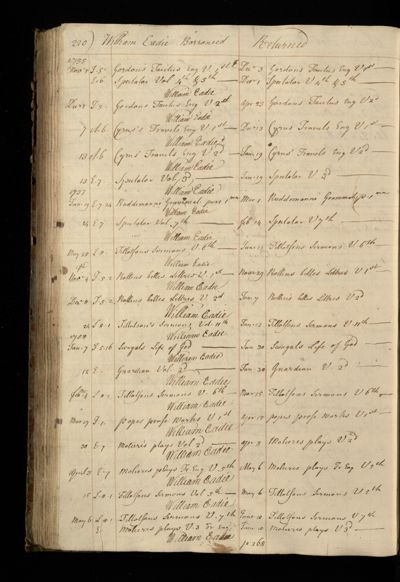 220) William Eadie Borrowed Returned
1735
Gordons Tacitus Eng V 1st Decr 3 Gordons Tacitus Eng V 1st
Spectator Vol 4th & 5th Decr 1 Spectator V 4th & 5th
William Eadie
Gordons Tacitus Eng V 2d Apr 23 Gordons Tacitus Eng V 2d
William Eadie
7 Cyrus's Travels Eng V 1st Decr 13 Cyrus Travels Eng V 1st
William Eadie
13 Cyrus Travels Eng V 2d Janr 19 Cyrus Travels Eng V 2d
William Eadie
E.7 Spectator Vol 3d Janr 19 Spectator V 3d
1737 William Eadie
Ruddimanns Grammat. pars 1ma Ruddimanns Grammat p 1ma
William Eadie
E.7 Spectator Vol 7th Feb 14 Spectator V 7th
William Eadie
Tillotsons Sermons V 5th Tillotsons Sermons V 5th
William Eadie
Rollins belles lettres V. 1st Rollins belles Lettres V 1st
William Eadie
Rollins belles lettres V 2d Janr 7 Rollins belles Lettres V 2d
William Eadie
Tillotson's Sermons Vol 11th Janr 12 Tillotsons Sermons V 11th
1738 William Eadie
Scougals Life of God Jan 20 Scougals Life of God
William Eadie
12 E. Guardian Vol 2d Jan 30 Guardian V 2d
William Eadie
Tillotsons Sermons V 6th Mar 15 Tillotsons Sermons V 6th
William Eadie
popes prose works V 1st popes prose works V 1st
William Eadie
30 E.7 Molieres plays Vol 2d Apr 3 Molieres plays V 2d
William Eadie
April 3 E.7 Molieres plays Fr Eng V 5th May 6 Molieres plays Fr Eng V 5th
William Eadie
Tillotsons Sermons Vol May 6 Tillotsons Sermons V
William Eadie
May 6 Tillotsons Sermons V 7th June 10 Tillotsons Sermons V 7th
Molieres plays V 3 Fr Eng June 10 Molieres plays V 3d
William Eadie
p 268